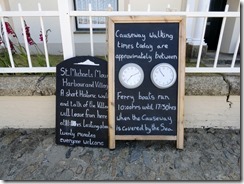 St. Michaels Mount
Harbour and Village
A short Historic walk
and talk of the Village
will leave from here
at
twenty minutes
everyone welcome
Causeway walking
times today are
approximately between
Ferry boats run
10:00hrs until 17:30hrs
when the Causeway
is covered by the Sea.